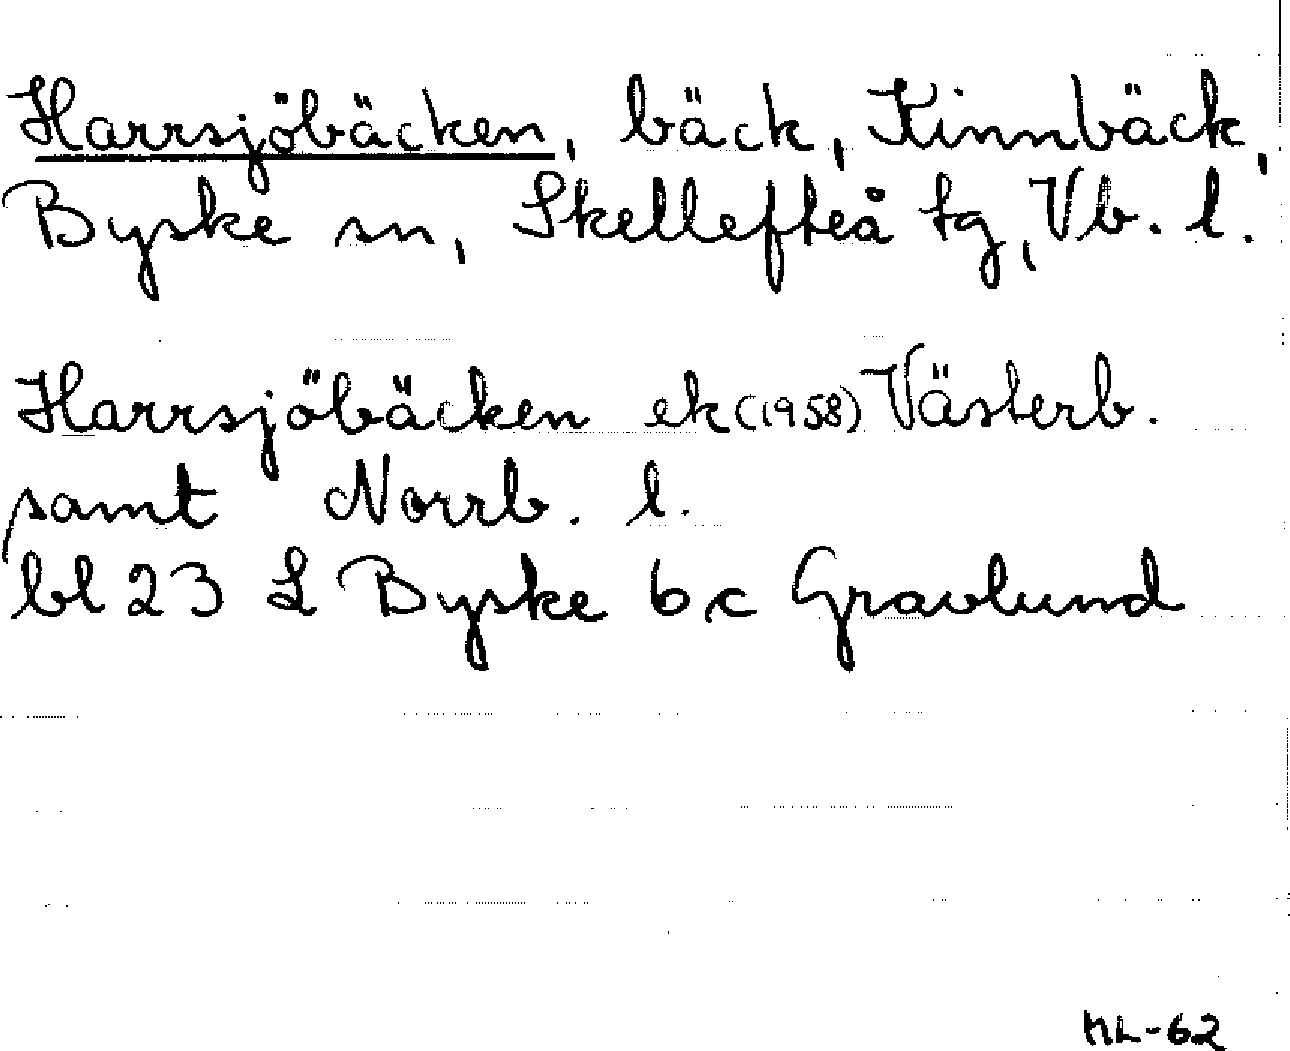 Harrsjöbäcken, bäck, Kinnbäck,
Byske sn, Skellefteå tg, Vb. l.
Harrsjöbäcken ek (1958) Västerb.
samt Norrb. l.
bl 23 L Byske b c Gravlund
ML-62